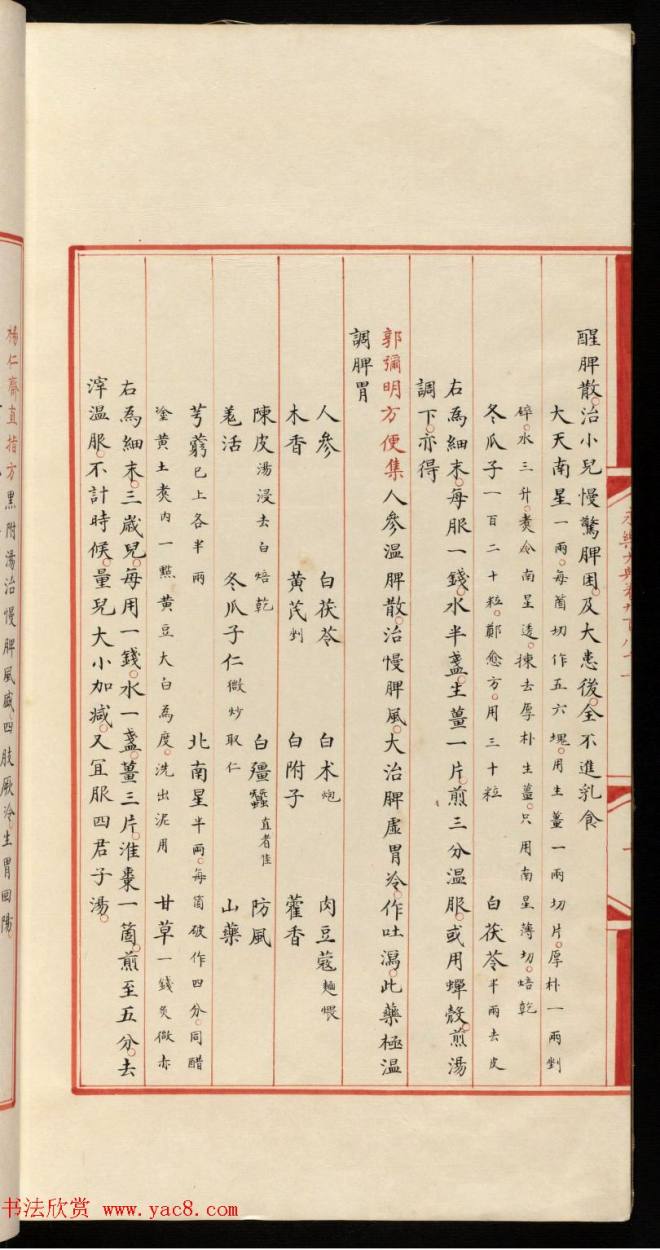 醒脾散。治小兒慢驚脾困。及大患後。全不進乳食
大天南星一兩。每箇切作五六塊。用生薑一兩切片。厚朴一兩剉
碎。水三升。煑令南星透。揀去厚朴生薑。只用南星薄切。焙乾
冬瓜子一百二十粒。鄭愈方。用三十粒
白茯苓半兩去皮
右為細末。每服一錢。水半盞。生薑一片。煎三分溫服。或用蟬殼。煎湯
調下。亦得
郭彌明方便集人參溫脾散。治慢脾風。大治脾虛胃冷。作吐瀉。此藥極溫
調脾胃
人參 白茯苓 白术炮 肉豆蔻麵煨
木香 黃芪剉 白附子 藿香
陳皮湯浸去白焙乾 白殭蠶直者佳 防風
羗活 冬瓜子仁微炒取仁 山藥
芎藭已上各半兩 北南星半兩。每箇破作四分。同醋
塗黃土煑內一㸃黃豆大白為度。洗出泥用 甘草一錢炙微赤
右為細末。三歲兒。每用一錢。水一盞。薑三片。淮棗一箇。煎至五分。去
滓溫服。不計時候。量兒大小加減。又宜服四君子湯。
楊仁齋直指方黑附湯治慢脾風。四肢厥冷。生胃回陽。
书法欣赏 www.yac8.com